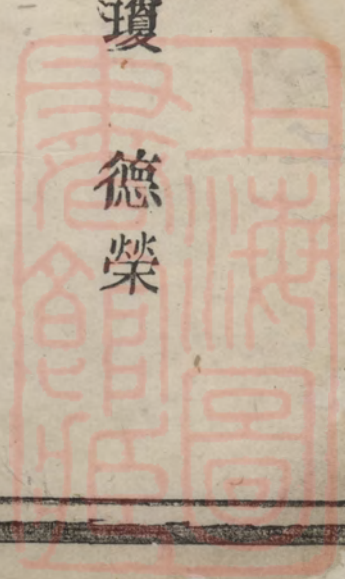 瓊 德榮
上海圖
書館藏